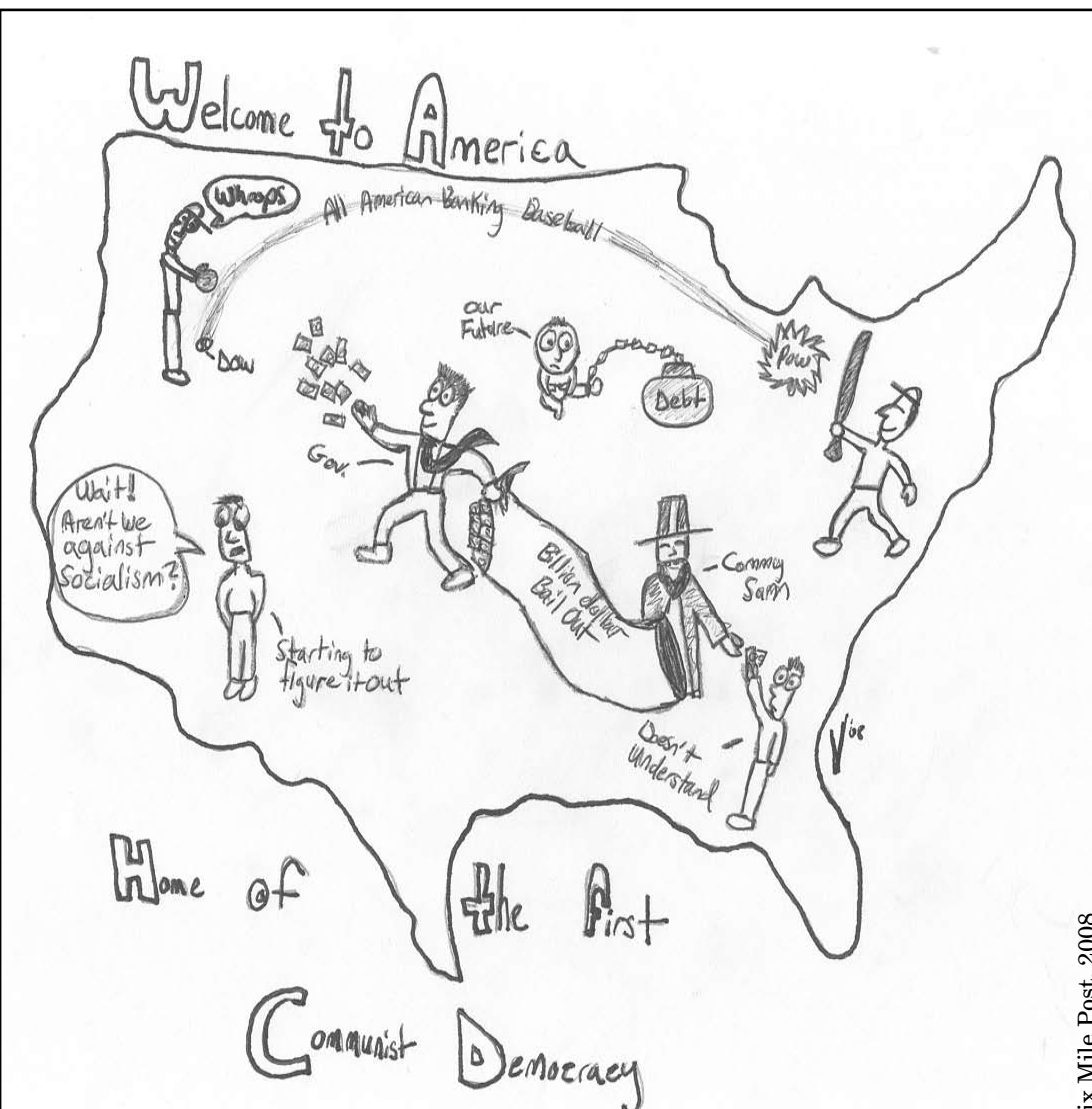 Welcome to America
Whoops
All American Banking Baseball
Dow
our
Future
Debt
Pow
Gov.
Wait!!
Aren't we
against
Socialism?
Starting to
figure it out
Billion dollar
Bail Out
Commy
Sam
Doesn't
understand
V '08
Home of the First
Communist Democracy
ix Mile Post, 2008